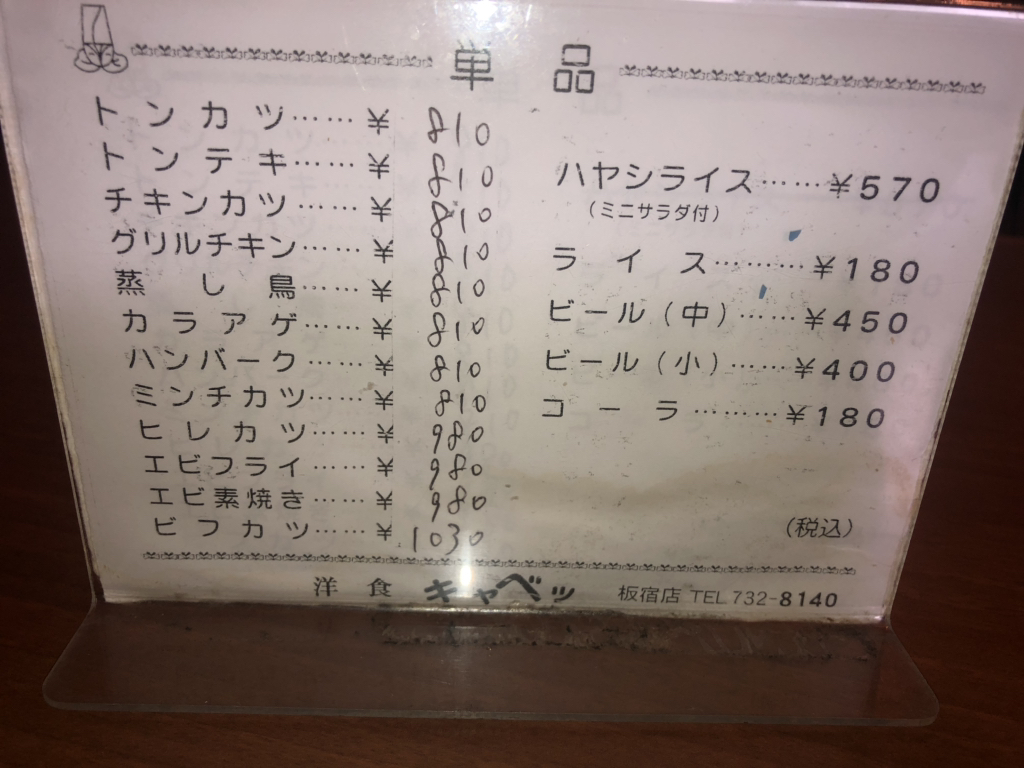 単品
トンカツ……¥810
トンテキ……¥810
チキンカツ……¥810
グリルチキン……¥810
蒸し鳥……¥810
カラアゲ……¥810
ハンバーク……¥810
ミンチカツ……¥810
ヒレカツ……¥980
エビフライ……¥980
エビ素焼き……¥980
ビフカツ……¥1030
ハヤシライス……¥570
(ミニサラダ付)
ライス………¥180
ビール(中)……¥450
ビール(小)……¥400
コーラ………¥180
(税込)
洋食 キャベツ 板宿店 TEL 732-8140